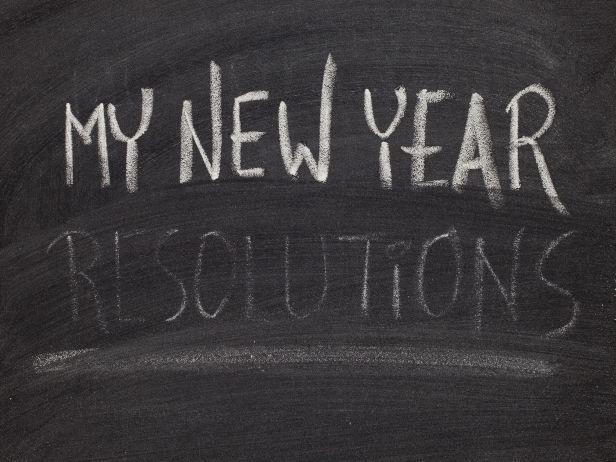 MY NEW YEAR
RESOLUTiONS